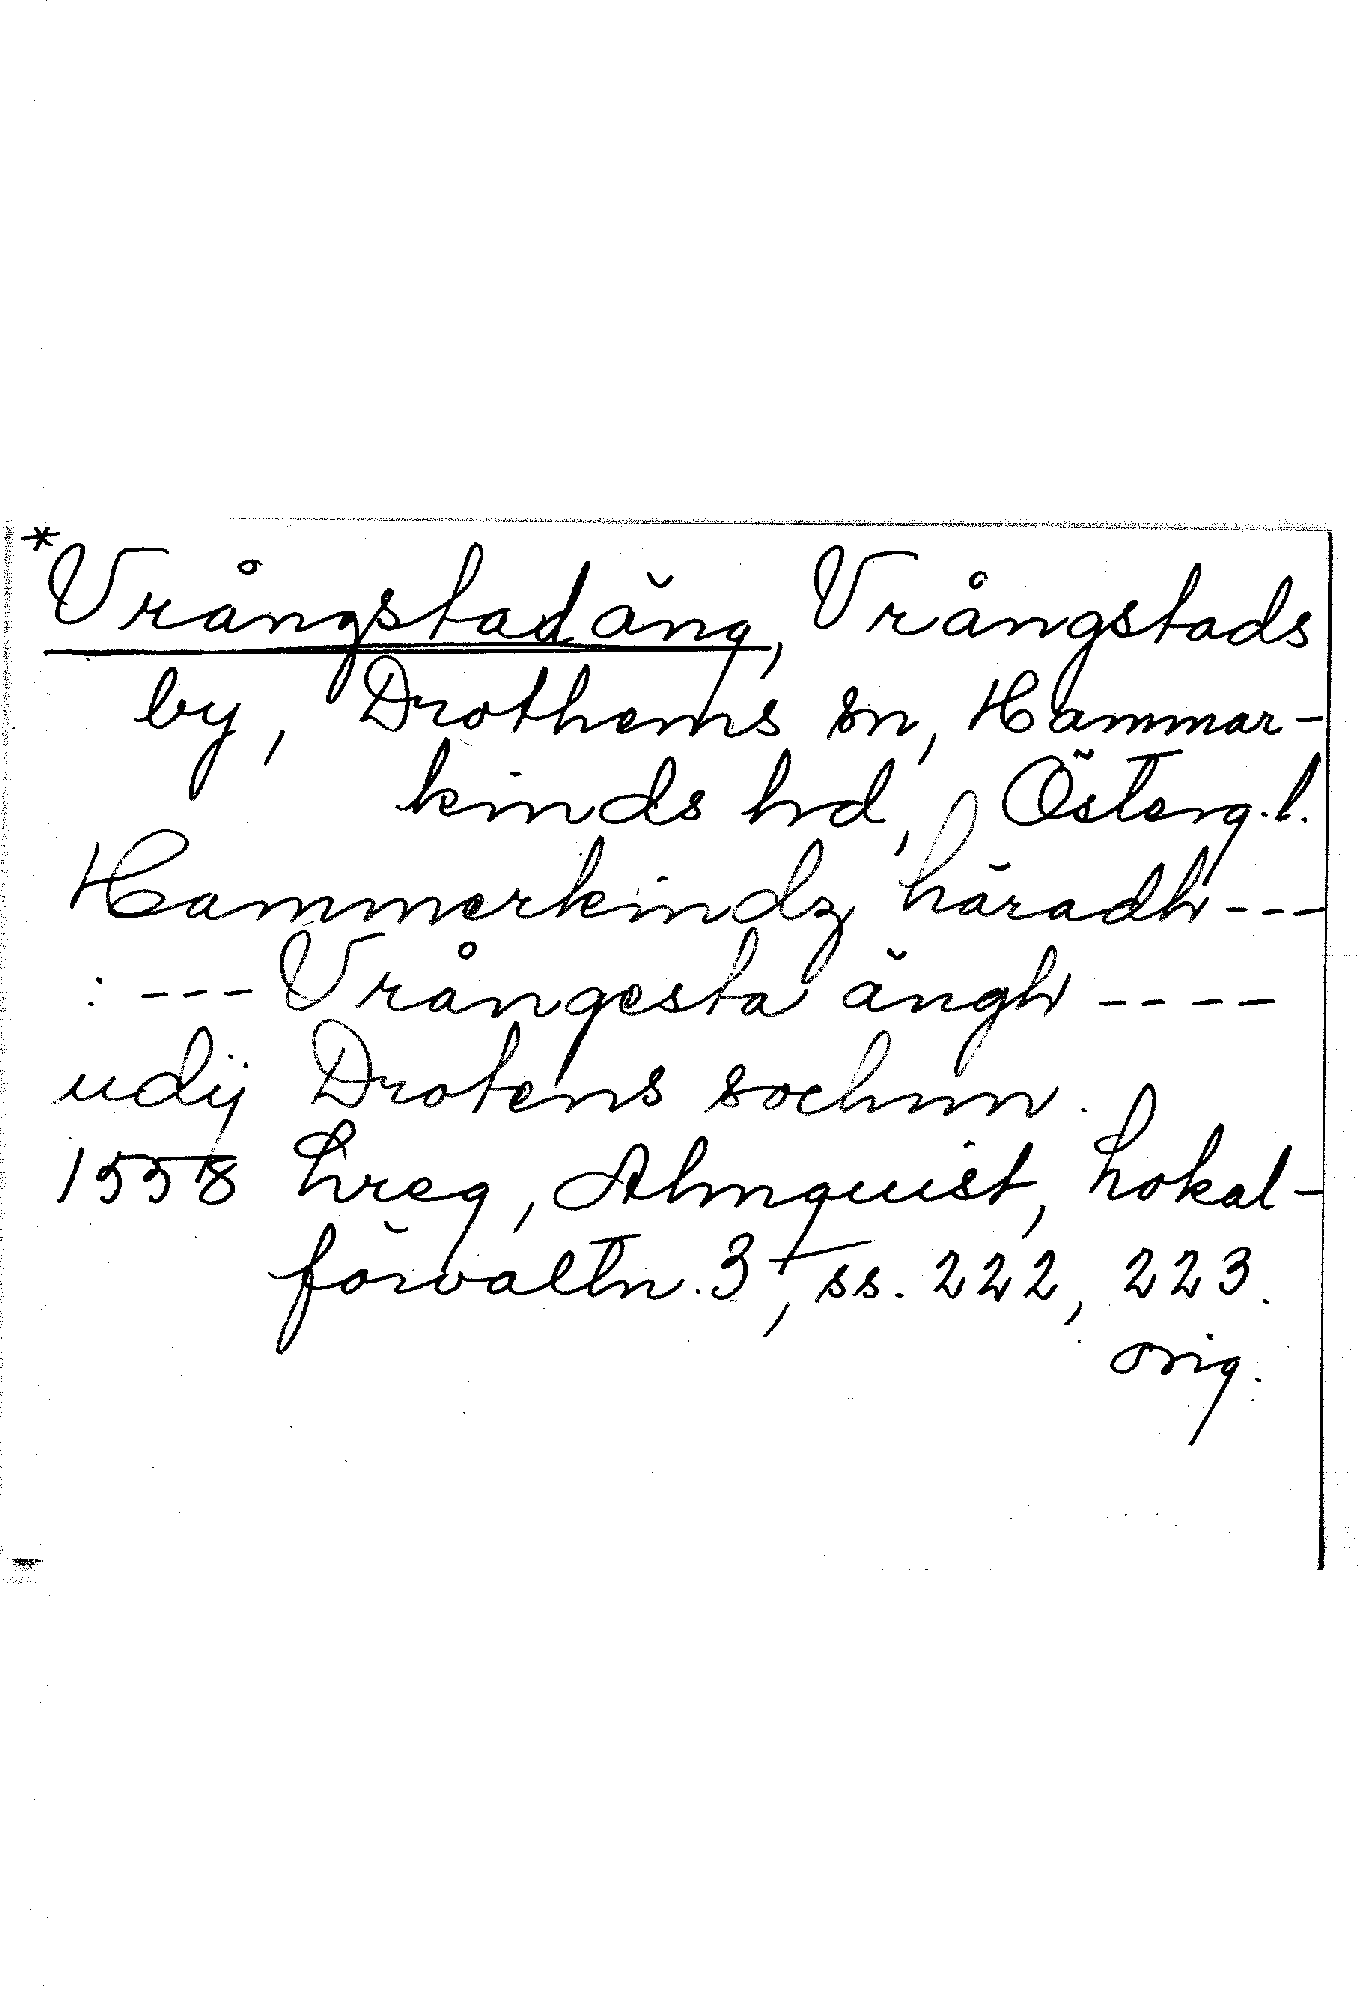 *Vrångstad äng, Vrångstads
by, Drothems sn, Hammar-
kinds hd, Österg.l.
Hammerkindz häradh ---
: --- Vrångesta ängh ----
udij Drotens sochnn.
1558 Lreg, Almquist, Lokal-
förvaltn. 3, ss. 222, 223.
orig.